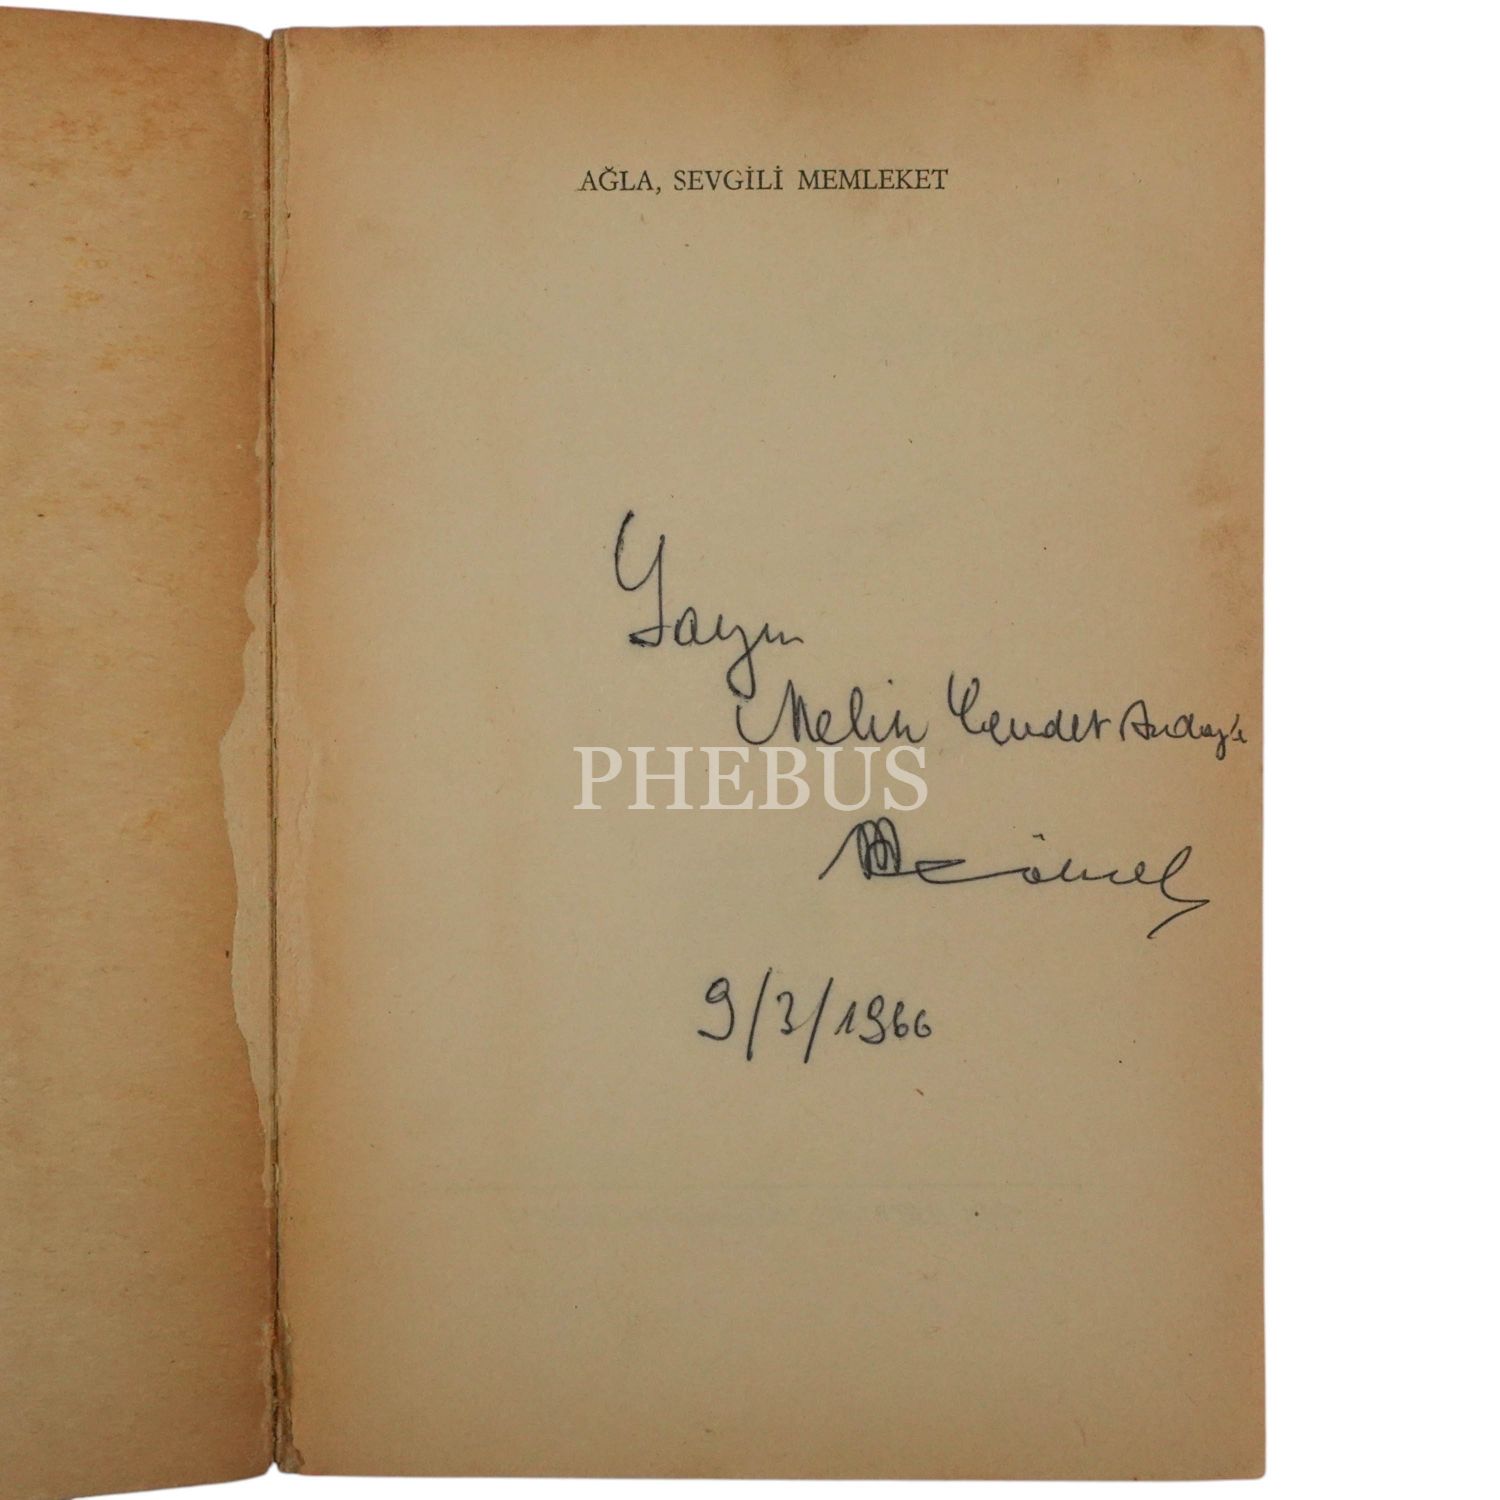 AĞLA, SEVGİLİ MEMLEKET
Sayın
Melih Cevdet Anday'a
PHEBUS
9/3/1966